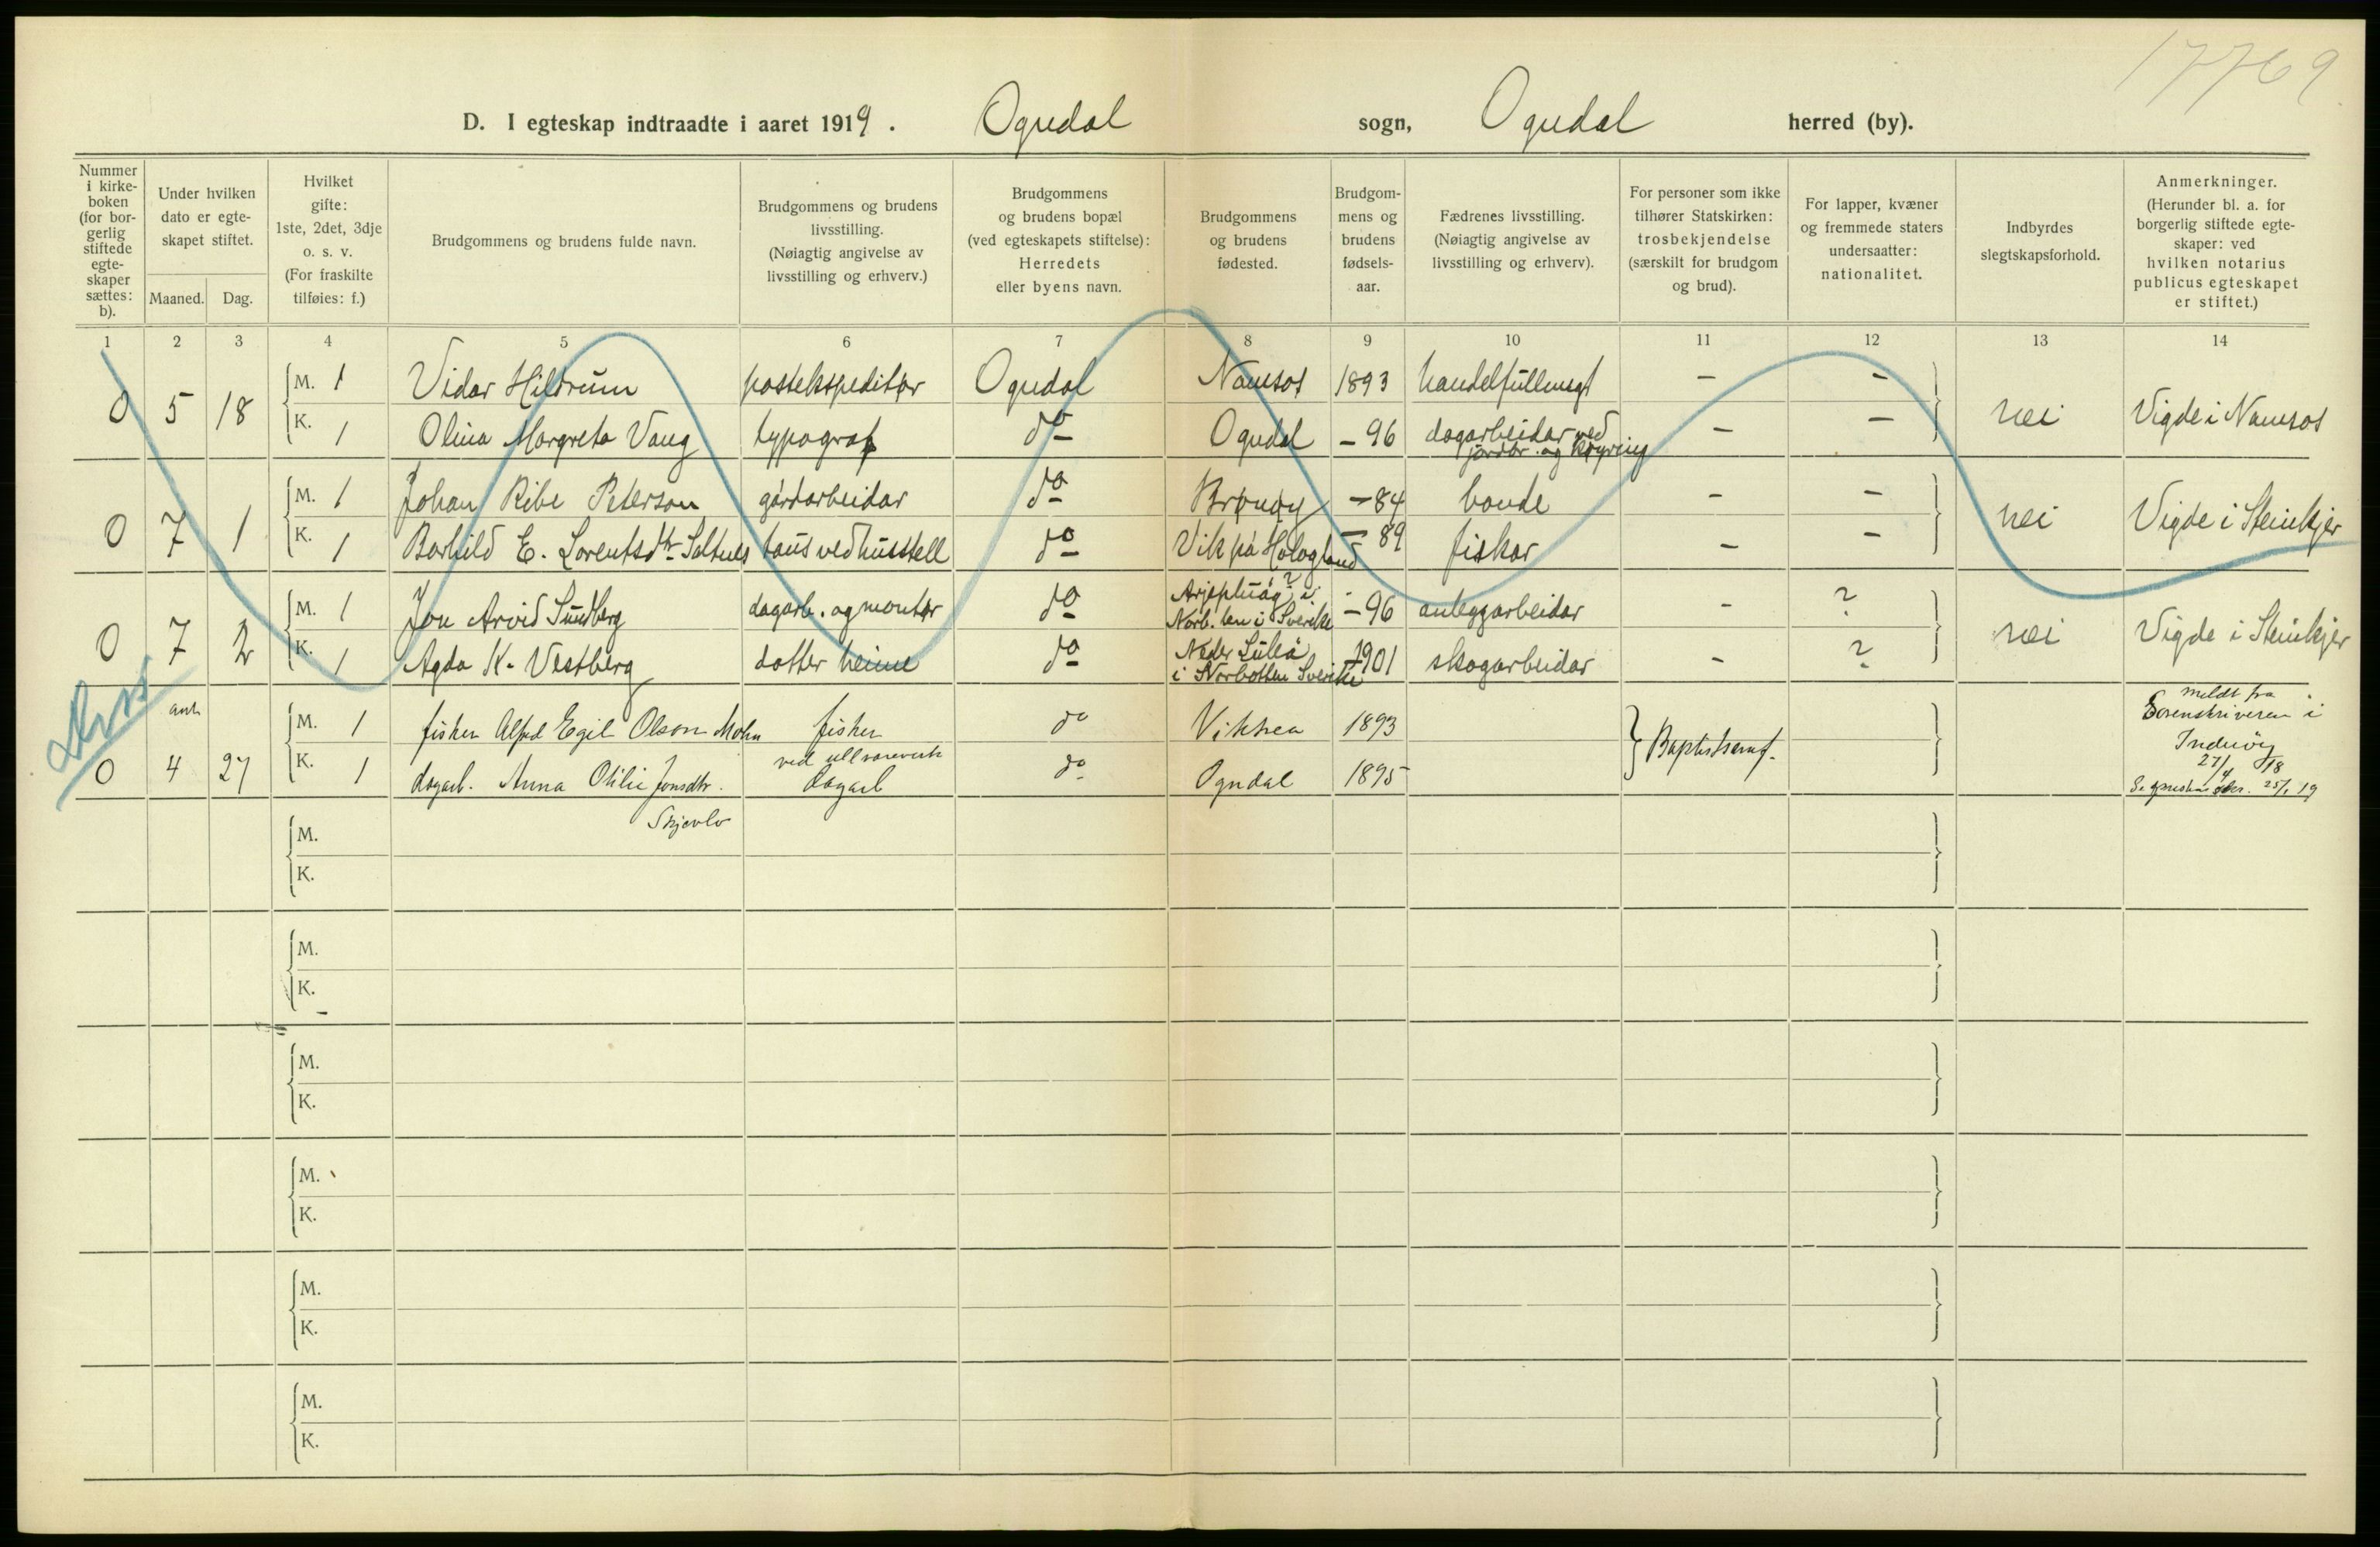 17769
D. I egteskap indtraadte i aaret 1919. Ogndal sogn, Ogndal herred (by).
Nummer i kirke-boken (for bor-gerlig stiftede egte-skaper sættes: b).
Under hvilken dato er egte-skapet stiftet.
Maaned. Dag.
Hvilket gifte: 1ste, 2det, 3dje o. s. v. (For fraskilte tilføies: f.)
Brudgommens og brudens fulde navn.
Brudgommens og brudens livsstilling. (Nøiagtig angivelse av livsstilling og erhverv.)
Brudgommens og brudens bopæl (ved egteskapets stiftelse): Herredets eller byens navn.
Brudgommens og brudens fødested.
Brudgom-mens og brudens fødsels-aar.
Fædrenes livsstilling. (Nøiagtig angivelse av livsstilling og erhverv).
For personer som ikke tilhører Statskirken: trosbekjendelse (særskilt for brudgom og brud).
For lapper, kvæner og fremmede staters undersaatter: nationalitet.
Indbyrdes slegtskapsforhold.
Anmerkninger. (Herunder bl. a. for borgerlig stiftede egte-skaper: ved hvilken notarius publicus egteskapet er stiftet.)
1 2 3 4 5 6 7 8 9 10 11 12 13 14
0 5 18 M. 1 Vidar Hildrum postekspeditør Ogndal Namsos 1893 handelfullmegt - - nei Vigde i Namsos
K. 1 Olina Margreta Vang typograf do Ogndal - 96 dagarbeidar ved jordbr. og køyring - -
0 7 1 M. 1 Johan Ribe Peterson gårdarbeidar do Brønøy - 84 bonde - - nei Vigde i Steinkjer
K. 1 Borhild E. Lorentsdtr Saltnes taus ved husstell do Vik på Helogland - 89 fiskar - -
0 7 2 M. 1 Jon Arvid Sundberg dagarb. og montør do Arjepluág? i Norb. len i Sverike - 96 anleggarbeidar - ? nei Vigde i Steinkjer
K. 1 Agda K. Vestberg dotter heime do Neder Luleå i Norbotten Sverike 1901 skogarbeidar - ?
0 4 27 M. 1 fisker Alfred Egil Olson Mohn fisker do Vikna 1893 Baptistsamf. meldt fra Sorenskriveren i Inderøy 27/4 18
K. 1 dagarb. Anna Otilie Jonsdtr. Skjevlo ved ullvareverk dagarb do Ogndal 1895
M.
K.
M.
K.
M.
K.
M.
K.
M.
K.
M.
K.